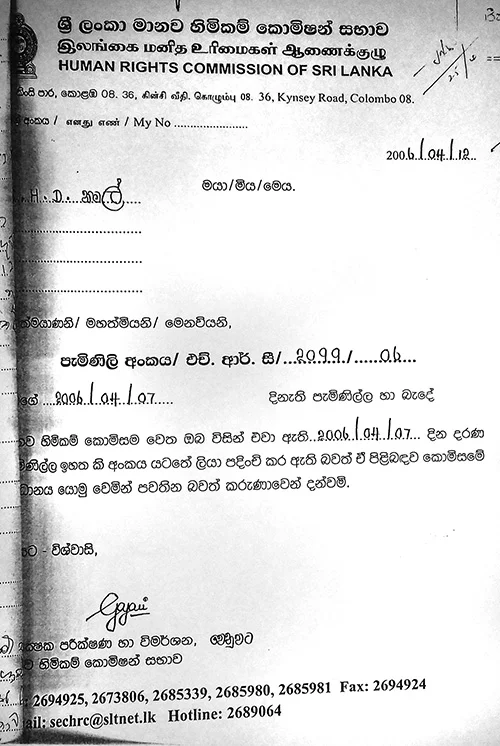 ශ්‍රී ලංකා මානව හිමිකම් කොමිෂන් සභාව
இலங்கை மனித உரிமைகள் ஆணைக்குழு
HUMAN RIGHTS COMMISSION OF SRI LANKA
කිංසි පාර, කොළඹ 08. 36, கின்சி வீதி, கொழும்பு 08. 36, Kynsey Road, Colombo 08.
අංකය / எனது எண் / My No ........................
2006/04/12
මයා/මිය/මෙය.
H. D. කමල්
මහත්මියනි/ මෙනවියනි,
පැමිණිලි අංකය/ එච්. ආර්. සී/...2099./.....06...
2006/04/07 දිනැති පැමිණිල්ල හා බැඳේ
හිමිකම් කොමිසම වෙත ඔබ විසින් එවා ඇති..2006/04/07... දින දරණ
ඉහත කී අංකය යටතේ ලියා පදිංචි කර ඇති බවත් ඒ පිළිබඳව කොමිසමේ
යොමු වෙමින් පවතින බවත් කරුණාවෙන් දන්වමි.
විශ්වාසි,
පරීක්ෂණ හා විමර්ශන, වෙනුවට
හිමිකම් කොමිෂන් සභාව
: 2694925, 2673806, 2685339, 2685980, 2685981 Fax: 2694924
ail: sechrc@sltnet.lk Hotline: 2689064